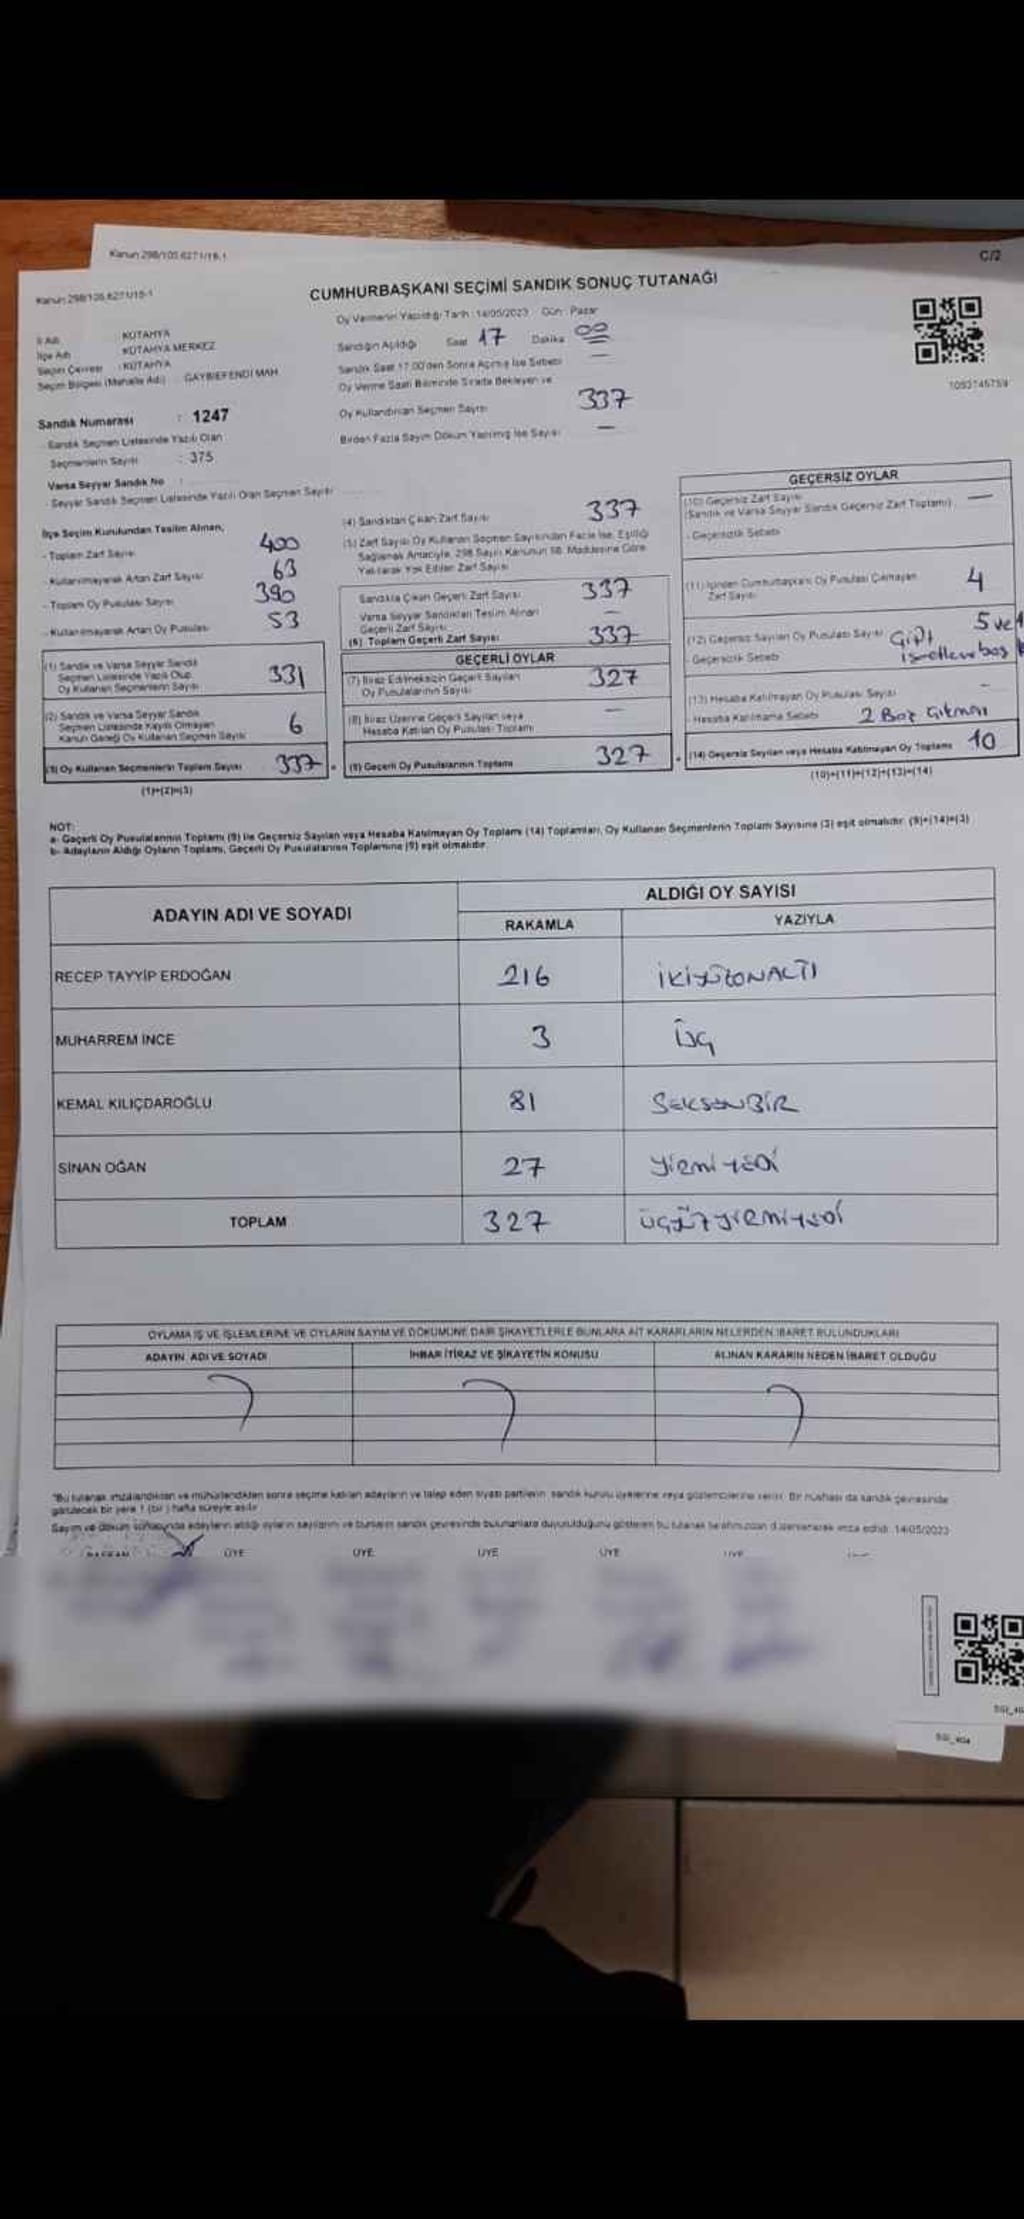 Kanun 298/105.6271/15-1
C/2
Kanun 298/105.6271/15-1
CUMHURBAŞKANI SEÇİMİ SANDIK SONUÇ TUTANAĞI
İl Adı KÜTAHYA
İlçe Adı KÜTAHYA MERKEZ
Seçim Çevresi : KÜTAHYA
Seçim Bölgesi (Mahalle Adı) : GAYBİEFENDİ MAH.
Sandık Numarası : 1247
- Sandık Seçmen Listesinde Yazılı Olan
Seçmenlerin Sayısı : 375
Varsa Seyyar Sandık No :
- Seyyar Sandık Seçmen Listesinde Yazılı Olan Seçmen Sayısı
Oy Vermenin Yapıldığı Tarih : 14/05/2023 Gün : Pazar
Sandığın Açıldığı Saat 17 Dakika 00
Sandık Saat 17.00'den Sonra Açılmış İse Sebebi —
Oy Verme Saati Bitiminde Sırada Bekleyen ve
Oy Kullandırılan Seçmen Sayısı 337
Birden Fazla Sayım Döküm Yapılmış İse Sayısı —
İlçe Seçim Kurulundan Teslim Alınan,
- Toplam Zarf Sayısı 400
- Kullanılmayarak Artan Zarf Sayısı 63
- Toplam Oy Pusulası Sayısı 390
- Kullanılmayarak Artan Oy Pusulası 53
(1) Sandık ve Varsa Seyyar Sandık
Seçmen Listesinde Yazılı Olup
Oy Kullanan Seçmenlerin Sayısı 331
(2) Sandık ve Varsa Seyyar Sandık
Seçmen Listesinde Kayıtlı Olmayan
Kanun Gereği Oy Kullanan Seçmen Sayısı 6
(3) Oy Kullanan Seçmenlerin Toplam Sayısı 337
(1)+(2)=(3)
(4) Sandıktan Çıkan Zarf Sayısı 337
(5) Zarf Sayısı Oy Kullanan Seçmen Sayısından Fazla İse, Eşitliği
Sağlamak Amacıyla, 298 Sayılı Kanunun 98. Maddesine Göre
Yakılarak Yok Edilen Zarf Sayısı
Sandıkta Çıkan Geçerli Zarf Sayısı 337
Varsa Seyyar Sandıktan Teslim Alınan
Geçerli Zarf Sayısı —
(6) Toplam Geçerli Zarf Sayısı 337
GEÇERLİ OYLAR
(7) İtiraz Edilmeksizin Geçerli Sayılan
Oy Pusulalarının Sayısı 327
(8) İtiraz Üzerine Geçerli Sayılan veya
Hesaba Katılan Oy Pusulası Toplamı —
(9) Geçerli Oy Pusulalarının Toplamı 327
1093745759
GEÇERSİZ OYLAR
(10) Geçersiz Zarf Sayısı
(Sandık ve Varsa Seyyar Sandık Geçersiz Zarf Toplamı) —
- Geçersizlik Sebebi
(11) İçinden Cumhurbaşkanı Oy Pusulası Çıkmayan
Zarf Sayısı 4
(12) Geçersiz Sayılan Oy Pusulası Sayısı
- Geçersizlik Sebebi
(13) Hesaba Katılmayan Oy Pusulası Sayısı —
- Hesaba Katılmama Sebebi
(14) Geçersiz Sayılan veya Hesaba Katılmayan Oy Toplamı 10
(10)+(11)+(12)+(13)=(14)
NOT:
a- Geçerli Oy Pusulalarının Toplamı (9) ile Geçersiz Sayılan veya Hesaba Katılmayan Oy Toplamı (14) Toplamları, Oy Kullanan Seçmenlerin Toplam Sayısına (3) eşit olmalıdır. (9)+(14)=(3)
b- Adayların Aldığı Oyların Toplamı, Geçerli Oy Pusulalarının Toplamına (9) eşit olmalıdır.
ADAYIN ADI VE SOYADI
ALDIĞI OY SAYISI
RAKAMLA YAZIYLA
RECEP TAYYİP ERDOĞAN 216 İKİYÜZONALTI
MUHARREM İNCE 3 ÜÇ
KEMAL KILIÇDAROĞLU 81 SEKSENBİR
SİNAN OĞAN 27 YİRMİYEDİ
TOPLAM 327 ÜÇYÜZYİRMİYEDİ
OYLAMA İŞ VE İŞLEMLERİNE VE OYLARIN SAYIM VE DÖKÜMÜNE DAİR ŞİKAYETLERLE BUNLARA AİT KARARLARIN NELERDEN İBARET BULUNDUKLARI
ADAYIN ADI VE SOYADI İHBAR İTİRAZ VE ŞİKAYETİN KONUSU ALINAN KARARIN NEDEN İBARET OLDUĞU
"Bu tutanak imzalandıktan ve mühürlendikten sonra seçime katılan adayların ve talep eden siyasi partilerin sandık kurulu üyelerine veya gözlemcilerine verilir. Bir nüshası da sandık çevresinde
görülecek bir yere 1 (bir) hafta süreyle asılır
Sayım ve döküm sonucunda adayların aldığı oyların sayılarını ve bunların sandık çevresinde bulunanlara duyurulduğunu gösteren bu tutanak tarafımızdan düzenlenerek imza edildi. 14/05/2023
BAŞKAN ÜYE ÜYE ÜYE ÜYE ÜYE